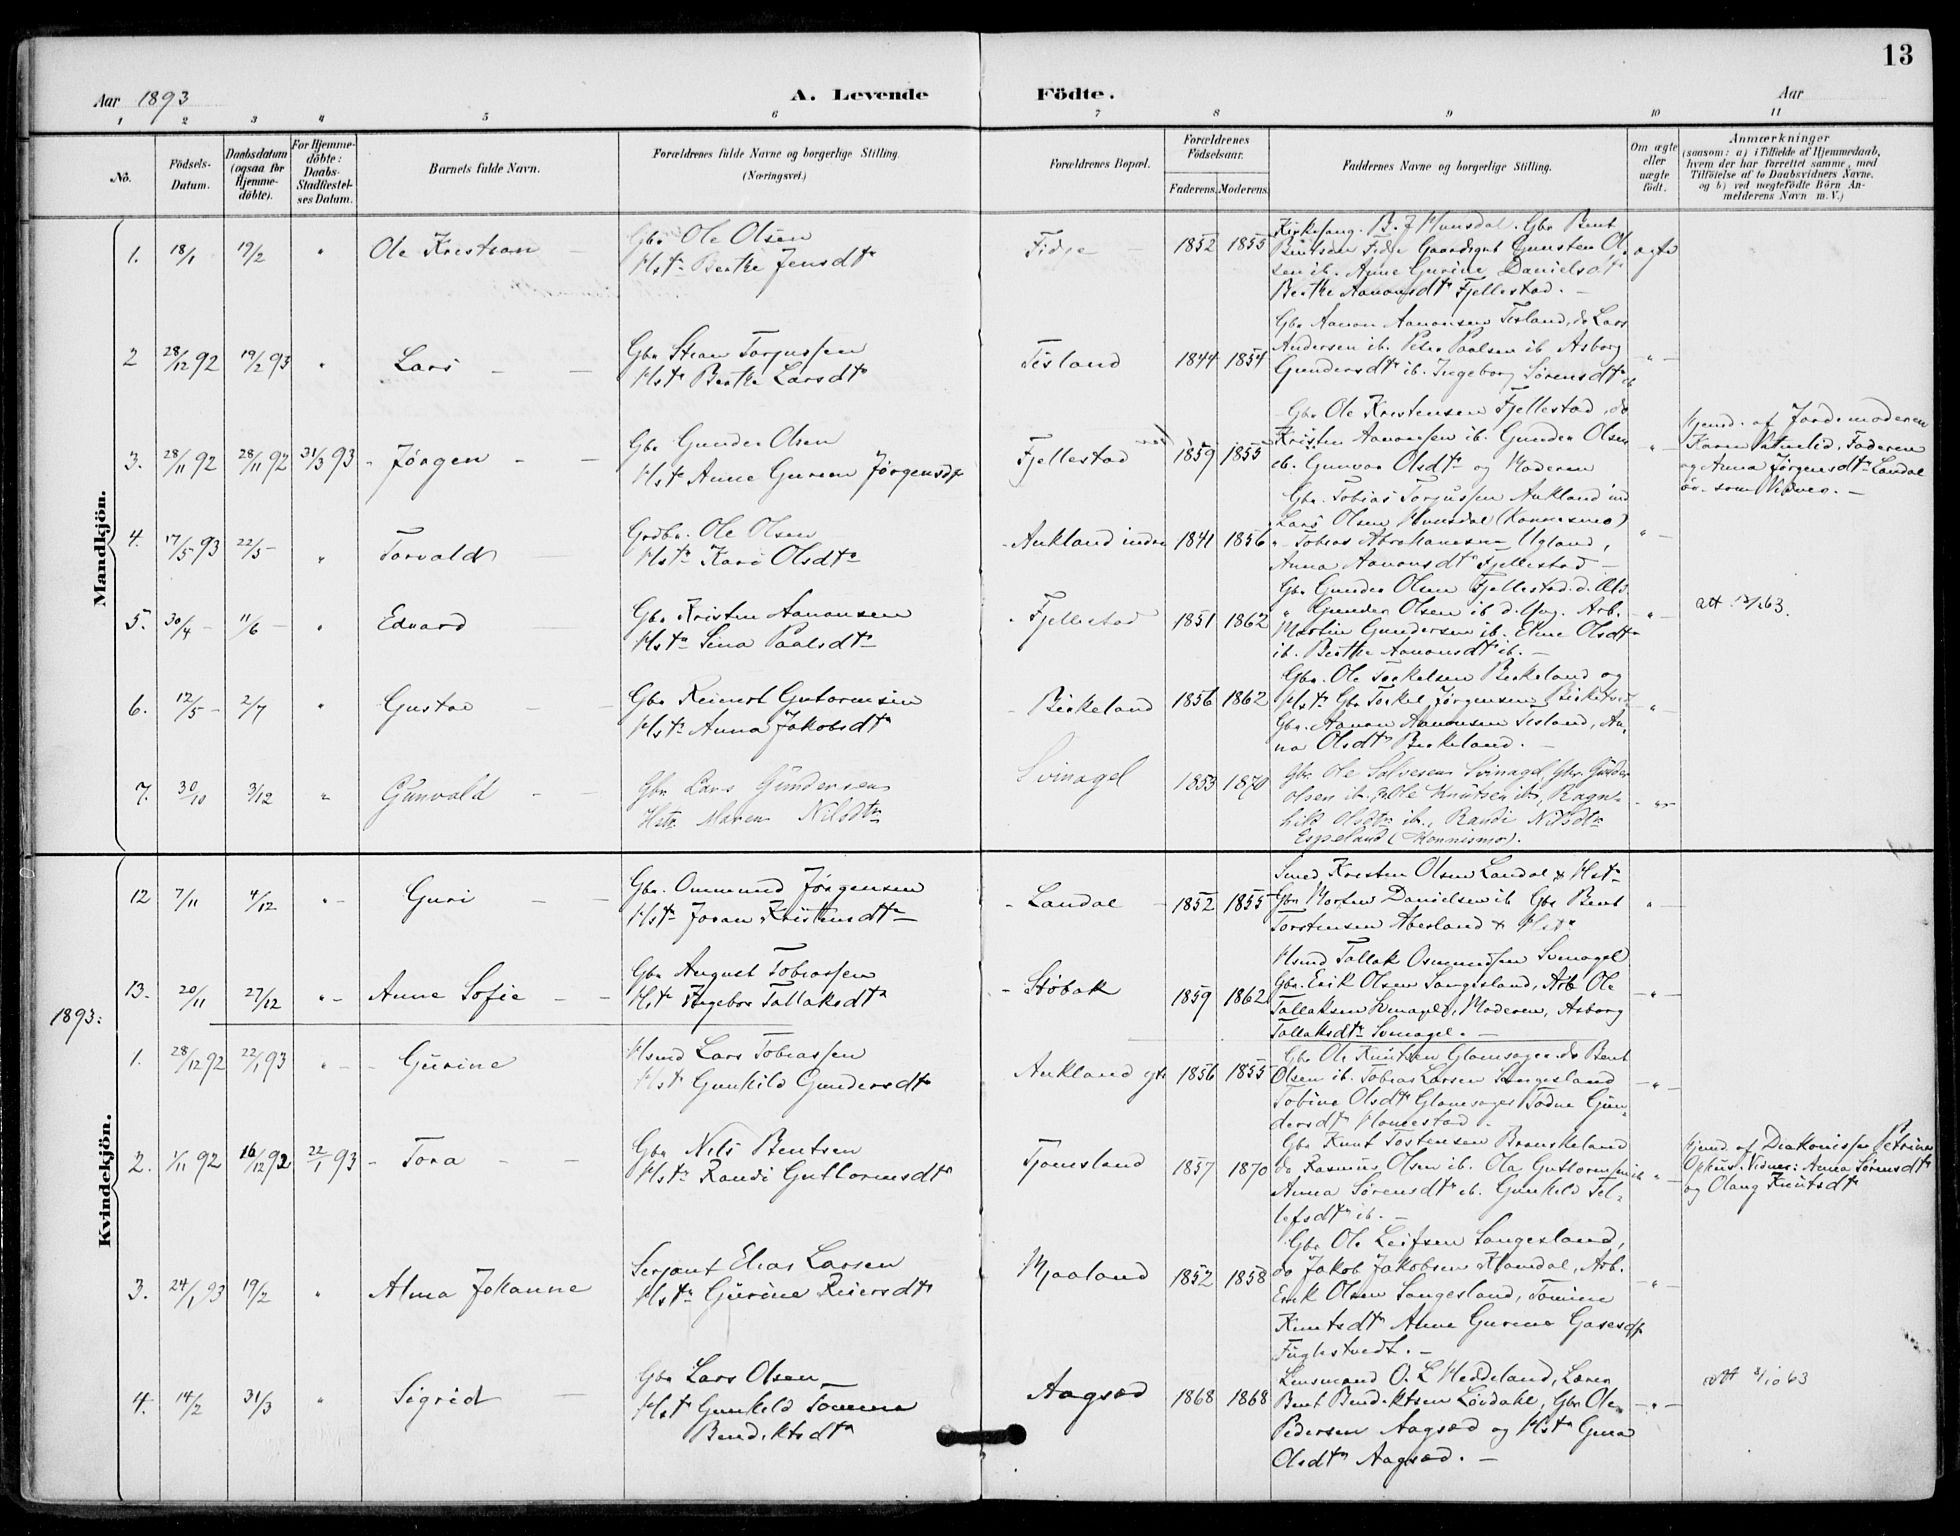 13
Aar 1893
A. Levende Födte.
Aar
1 2 3 4 5 6 7 8 9 10 11
No.
Födsels-Datum.
Daabsdatum (ogsaa for Hjemme-döbte).
For Hjemme-döbte: Daabs-Stadfæstel-ses Datum.
Barnets fulde Navn.
Forældrenes fulde Navne og borgerlige Stilling. (Næringsvei.)
Forældrenes Bopæl.
Forældrenes Födselsaar.
Faderens. Moderens.
Faddernes Navne og borgerlige Stilling.
Om ægte eller uægte födt.
Anmærkninger
(saasom: a) i Tilfælde af Hjemmedaab,
hvem der har forrettet samme, med
Tilföielse af to Daabsvidners Navne.
og b) ved uægtefödte Börn An-
melderens Navn m. V.)
Mandkjön.
1. 18/1 19/2 " Ole Kristian
Gbr Ole Olsen
Hstr Berthe Jensdtr
Fidje 1852 1855
Kirkesang. B. J Hunsdal. Gbr Bent
Bentsen Fidje Gaardsgut Gunsten Ol-
sen ib. Anne Gurine Danielsdtr
Berthe Aanonsdtr Fjellestad. -
ægte
2 28/12 92 19/2 93 " Lars
Gbr Stian Torjussen
Hstr Berthe Larsdtr
Tisland 1844 1854
Gbr Aanon Aanonsen Tisland, do Lars
Andersen ib. Peder Paalsen ib Asborg
Gundersdtr ib. Ingeborg Sørensdtr ib
" -
3. 28/11 92 28/11 92 31/3 93 - Jørgen
Gbr Gunder Olsen
Hstr Anne Gurine Jørgensdtr
Fjellestad 1859 1855
Gbr Ole Kristensen Fjellestad, do
Kristen Aanonsen ib. Gunder Olsen
ib. Gunvor Olsdtr og Moderen
" -
Hjemd. af Jordemoderen
Karen Vatnelid. Faderen
og Anna Jørgensdtr Landal
øv. som Vidner. -
4. 17/5 93 22/5 - " Torvald
Grdbr. Ole Olsen
Hstr Kari Olsdtr
- Aukland indre 1841 1856
Gbr. Tobias Torjussen Aukland ind
Lars Olsen Hunsdal (Konnesmo)
" Tobias Abrahamsen Ugland,
Anna Aanonsdtr Fjellestad -
" -
5. 30/4 - 11/6 - " Edvard
Gbr Kristen Aanonsen
Hstr Sina Paalsdtr
- Fjellestad 1851 1862
Gbr Gunder Olsen Fjellestad d. Æld.
" Gunder Olsen ib d. Yng. Arb.
Martin Gundersen ib. Eline Olsdtr
ib. Berthe Aanonsdtr ib. -
" -
6. 12/5 - 2/7 " Gustav
Gbr Reinert Gutormsen
Hstr Anna Jakobsdtr
- Birkeland 1856 1862
Gbr. Ole Torkelsen Birkeland og
Hstr Gbr Torkel Jørgensen
Gbr. Aanon Aanonsen Tisland, An-
na Olsdtr Birkeland. -
" -
7. 30/10 3/12 " Gunvald
Gbr Lars Gundersen
Hstr Maren Nilsdtr
Svinagel 1853 1870
Gbr. Ole Salvesen Svinagel, Gbr. Gunder
Olsen ib., Ole Knutsen ib., Ragn-
hild Olsdtr ib., Randi Nilsdtr
Espeland (Konnismo).
Kvindekjön.
12 7/11 4/12 " - Guri
Gbr. Ommund Jørgensen
Hstr Joran Kristensdtr
- Landal 1852 1855
Smed Kristen Olsen Landal & Hstr
Gbr Morten Danielsen ib Gbr Bent
Torstensen Abesland & Hstr
" -
13. 20/11 27/12 " - Anne Sofie
Gbr August Tobiassen
Hstr Ingebor Tallaksdtr
- Støbak 1859 1862
Hsmd Tallak Osmundsen Svinagel
Gbr. Erik Olsen Sangesland, Arb Ole
Tallaksen Svinagel, Moderen, Asborg
Tallaksdtr Svinagel. -
" -
1893:
1. 28/12 92 22/1 93 " - Gurine
Hsmd Lars Tobiassen
Hstr Gunhild Gundersdtr
Aukland 1856 1855
Gbr Ole Knutsen Glamsager do Bent
Olsen ib. Tobias Larsen Sangesland
Tobine Olsdtr Glamsager Todne Gun-
dersdtr Homestad.
" -
2. 1/11 92 16/12 92 22/1 93 - Tora
Gbr Nils Bentsen
Hstr Randi Guttormsdtr
Tjomsland 1857 1870
Gbr Knut Tostensen Brunskeland
do Rasmus Olsen ib. Ola Guttormsen ib
Anna Sørensdtr ib. Gunhild Tel-
lefsdtr ib. -
" -
Hjemd. af Diakonisse Petrine
Ophus. Vidner: Anna Sørensdtr
og Olaug Knutsdtr
3. 24/1 93 19/2 " Alma Johanne
Serjant Elias Larsen
Hstr Gurine Reiersdtr
Mjaaland 1852 1858
Gbr Ole Leifsen Sangesland,
do Jakob Jakobsen Homdal, Arb.
Erik Olsen Sangesland, Tomine
Knutsdtr Anne Gurine
Fuglestvedt. -
" -
4. 14/2 31/3 " Sigrid
Gbr Lars Olsen
Hstr Gunhild Tomine
Bendiktsdtr
Aagsæd 1868 1868
Lensmand O. L Heddeland, Lærer
Bent Bendiktsen Løvdahl, Gbr Ole
Pedersen Aagsæd og Hstr Guria
Olsdtr Aagsæd. -
" -
att 8/10 63